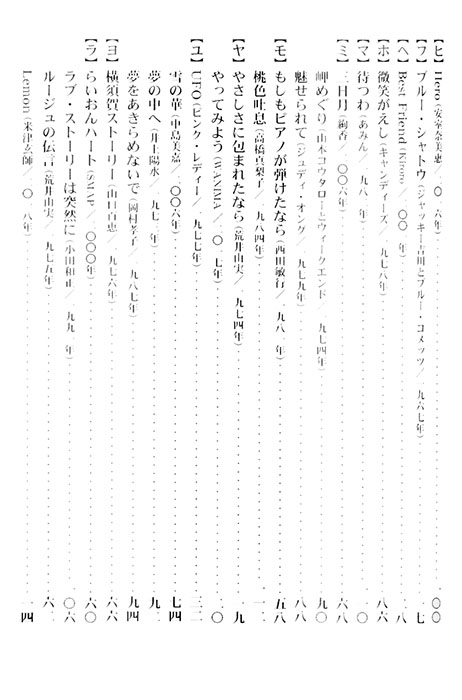 【ヒ】Hero（安室奈美恵／ 〇 六年）……〇〇
【フ】ブルー・シャトウ（ジャッキー吉川とブルー・コメッツ／ 九六七年）……七
【ヘ】Best Friend（Kiroro／ 〇〇 年）……八
【ホ】微笑がえし（キャンディーズ／ 九七八年）……八六
【マ】待つわ（あみん／ 九八 年）……〇
【ミ】三日月（絢香／ 〇〇六年）……六八
岬めぐり（山本コウタローとウィークエンド／ 九七四年）……九〇
魅せられて（ジュディ・オング／ 九七九年）……八八
【モ】もしもピアノが弾けたなら（西田敏行／ 九八 年）……五八
桃色吐息（高橋真梨子／ 九八四年）
【ヤ】やさしさに包まれたなら（荒井由実／ 九七四年）……九
やってみよう（WANIMA／ 〇 七年）……〇
【ユ】UFO（ピンク・レディー／ 九七七年）……三二
雪の華（中島美嘉／ 〇〇 年）……七四
夢の中へ（井上陽水／ 九七 年）
夢をあきらめないで（岡村孝子／ 九八七年）……九四
【ヨ】横須賀ストーリー（山口百恵／ 九七六年）……六六
【ラ】らいおんハート（SMAP／ 〇〇〇年）……六〇
ラブ・ストーリーは突然に（小田和正／ 九九 年）……〇六
ルージュの伝言（荒井由実／ 九七五年）
Lemon（米津玄師／ 〇 八年）……一四